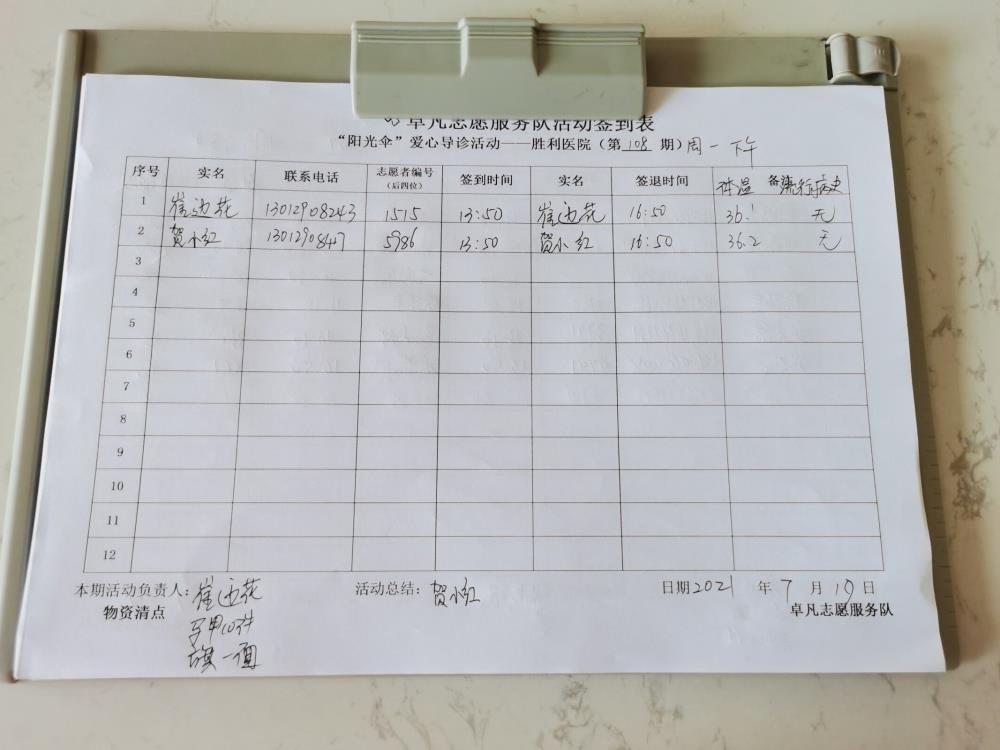 卓凡志愿服务队活动签到表
“阳光伞”爱心导诊活动——胜利医院（第 108 期）周一 下午
序号 实名 联系电话 志愿者编号（后四位） 签到时间 实名 签退时间 体温 备注 流行病史
1 崔迎花 13012908243 1515 13:50 崔迎花 16:50 36.1 无
2 贺小红 1301290847 5986 13:50 贺小红 16:50 36.2 无
3
4
5
6
7
8
9
10
11
12
本期活动负责人：崔迎花 活动总结：贺小红 日期2021 年 7 月 19 日
物资清点 卓凡志愿服务队
马甲10件
旗一面